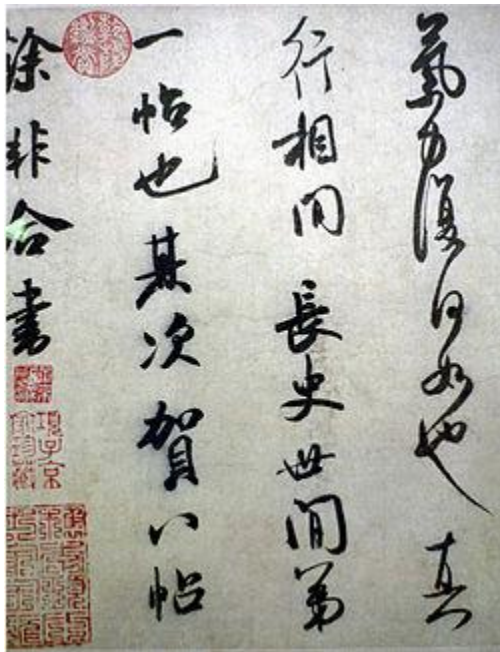 氣力復何如也 真
行相間 長史世間第
一帖也 其次賀八帖
餘非合書
項子京
家珍藏